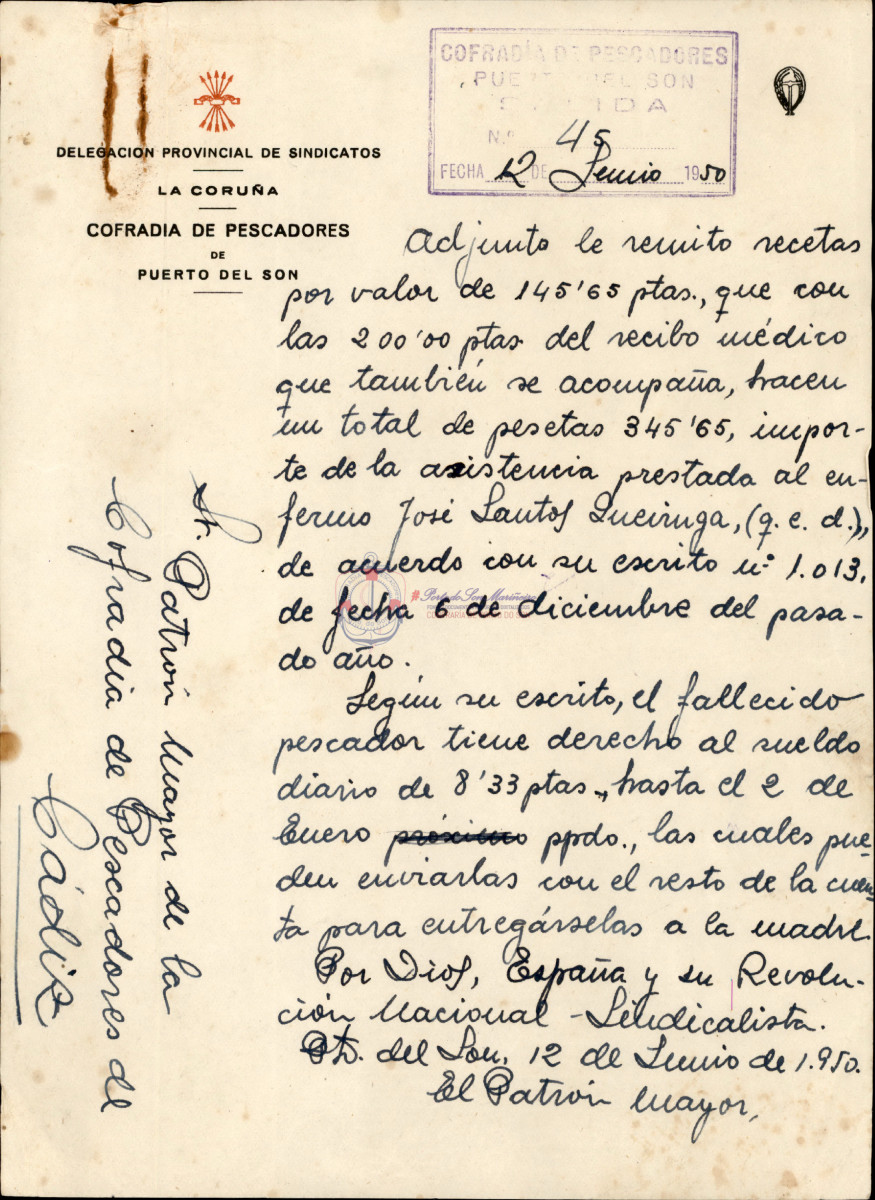 DELEGACION PROVINCIAL DE SINDICATOS
LA CORUÑA
COFRADIA DE PESCADORES
DE
PUERTO DEL SON
COFRADÍA DE PESCADORES
PUERTO DEL SON
SALIDA
N.º 45
FECHA 12 DE Junio 1950
Adjunto le remito recetas
por valor de 145'65 ptas., que con
las 200'00 ptas. del recibo médico
que también se acompaña, hacen
un total de pesetas 345'65, impor-
te de la asistencia prestada al en-
fermo José Santos Queiruga, (q. e. d.),
de acuerdo con su escrito nº 1.013,
de fecha 6 de diciembre del pasa-
do año.
Según su escrito, el fallecido
pescador tiene derecho al sueldo
diario de 8'33 ptas., hasta el 2 de
Enero próximo ppdo., las cuales pue-
den enviarlas con el resto de la cuen-
ta para entregárselas a la madre.
Por Dios, España y su Revolu-
ción Nacional-Sindicalista.
Pto. del Son, 12 de Junio de 1.950.
El Patrón Mayor,
Sr. Patrón Mayor de la
Cofradía de Pescadores de
Cádiz
#Porto do Son Mariñeiro